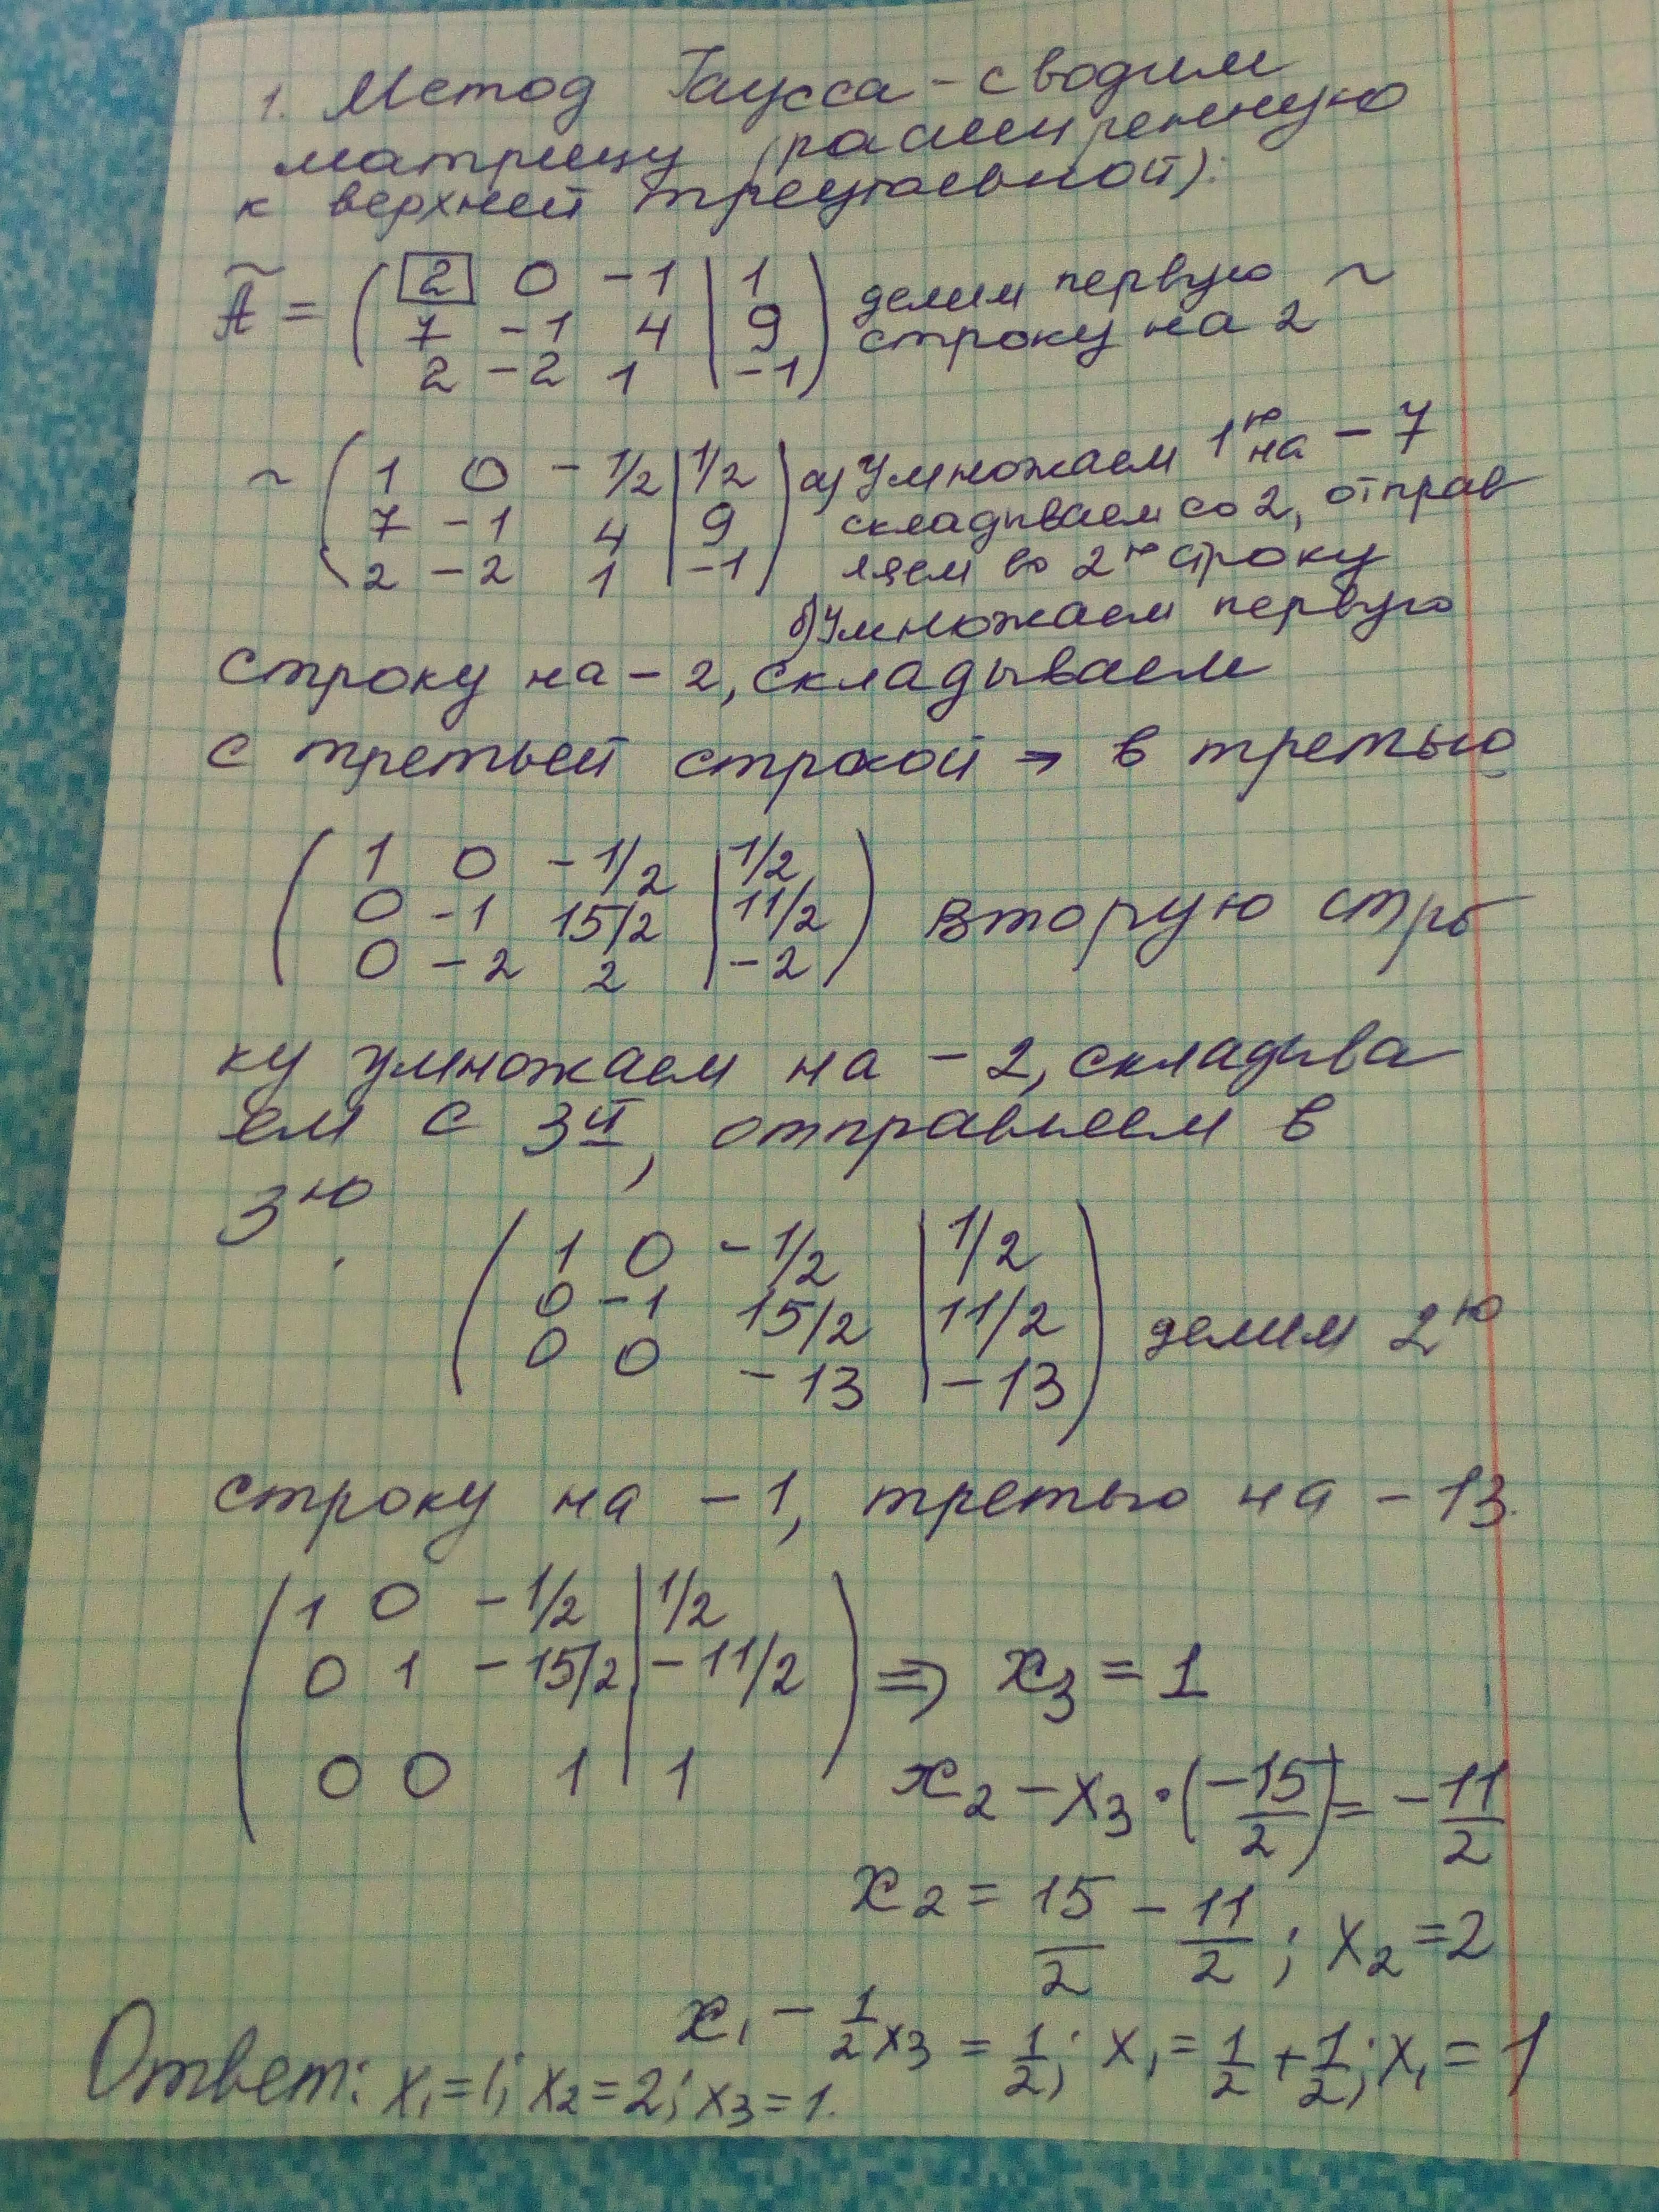 1. Метод Гаусса - сводим
матрицу (расширенную
к верхней треугольной):
Ã = ( 2 0 -1 | 1 ) делим первую ~
7 -1 4 | 9 строку на 2
2 -2 1 | -1
~ ( 1 0 -1/2 | 1/2 ) а) Умножаем 1ю на -7
7 -1 4 | 9 складываем со 2, отправ
2 -2 1 | -1 ляем во 2ю строку
б) Умножаем первую
строку на -2, складываем
с третьей строкой → в третью
( 1 0 -1/2 | 1/2 )
0 -1 15/2 | 11/2 вторую стро
0 -2 2 | -2
ку умножаем на -2, складыва
ем с 3й, отправляем в
3ю
( 1 0 -1/2 | 1/2 )
0 -1 15/2 | 11/2 делим 2ю
0 0 -13 | -13
строку на -1, третью на -13.
( 1 0 -1/2 | 1/2 )
0 1 -15/2 | -11/2 ⇒ x₃ = 1
0 0 1 | 1 x₂ - x₃ · (-15/2) = -11/2
x₂ = 15/2 - 11/2; x₂ = 2
x₁ - 1/2 x₃ = 1/2; x₁ = 1/2 + 1/2; x₁ = 1
Ответ: x₁=1; x₂=2; x₃=1.